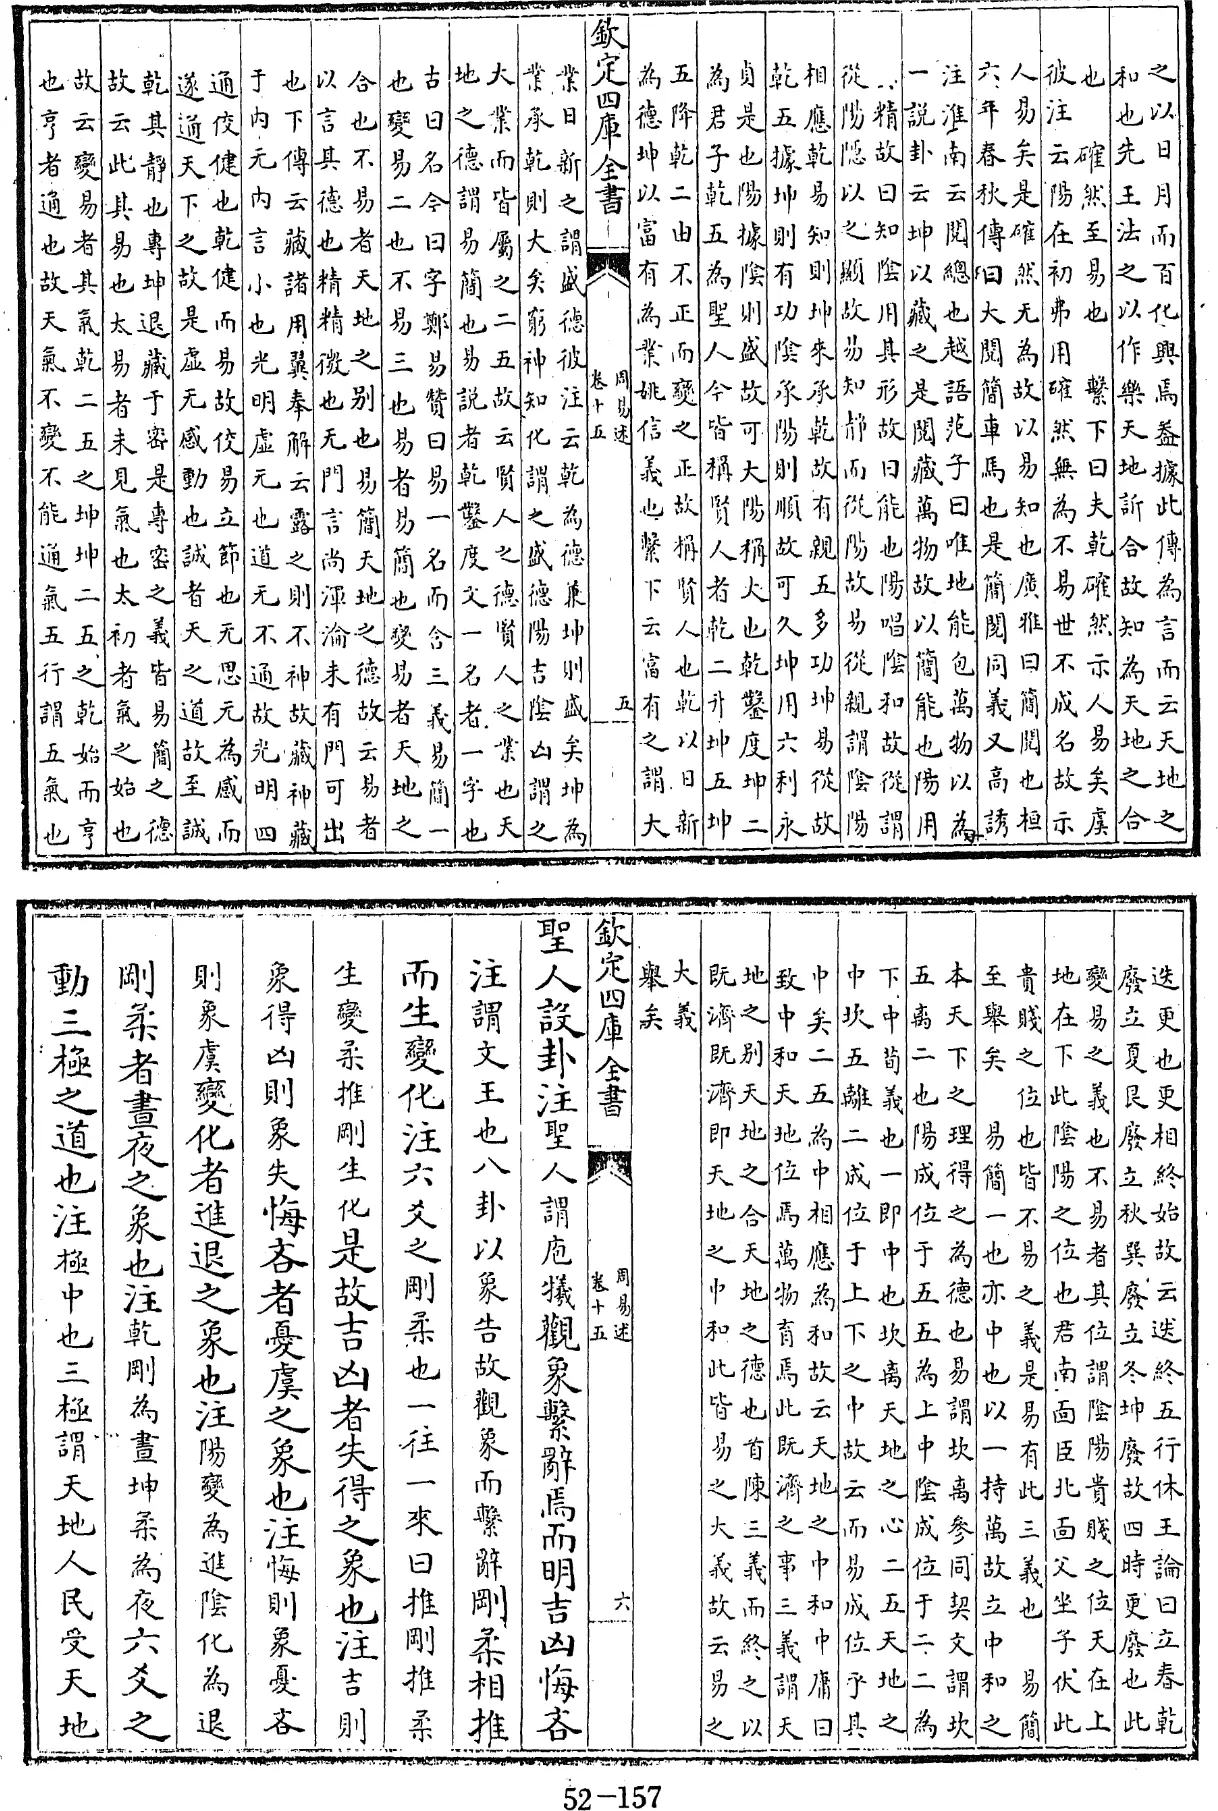 之以日月而百化興焉蓋據此傳為言而云天地之
和也先王法之以作樂天地訢合故知為天地之合
也　確然至易也　繫下曰夫乾確然示人易矣虞
彼注云陽在初弗用確然無為不易世不成名故示
人易矣是確然无為故以易知也廣雅曰簡閱也桓
六年春秋傳曰大閱簡車馬也是簡閱同義又高誘
注淮南云閱總也越語范子曰唯地能包萬物以為
一說卦云坤以藏之是閱藏萬物故以簡能也陽用
精故曰知陰用其形故曰能也陽唱陰和故從謂
從陽陽隱以之顯故易知靜而從陽故易從親謂陰陽
相應乾易知則坤來承乾故有親五多功坤易從故
乾五據坤則有功陰承陽則順故可久坤用六利永
貞是也陽據陰則盛故可大陽稱大也乾鑿度坤二
為君子乾五為聖人今皆稱賢人者乾二升坤五坤
五降乾二由不正而變之正故稱賢人也乾以日新
為德坤以富有為業姚信義也繫下云富有之謂大
欽定四庫全書
周易述
卷十五
五
業日新之謂盛德彼注云乾為德兼坤則盛矣坤為
業承乾則大矣窮神知化謂之盛德陽吉陰凶謂之
大業而皆屬之二五故云賢人之德賢人之業也天
地之德謂易簡也易說者乾鑿度文一名者一字也
古曰名今曰字鄭易贊曰易一名而含三義易簡一
也變易二也不易三也易者易簡也變易者天地之
合也不易者天地之别也易簡天地之德故云易者
以言其德也精精微也无門言尚渾淪未有門可出
也下傳云藏諸用翼奉解云露之則不神故藏神藏
于内无内言小也光明虚无也道无不通故光明四
通佼健也乾健而易故佼易立節也无思无為感而
遂通天下之故是虚无感動也誠者天之道故至誠
乾其靜也專坤退藏于密是專密之義皆易簡之德
故云此其易也太易者未見氣也太初者氣之始也
故云變易者其氣乾二五之坤坤二五之乾始而亨
也亨者通也故天氣不變不能通氣五行謂五氣也
迭更也更相終始故云迭終五行休王論曰立春乾
廢立夏艮廢立秋巽廢立冬坤廢故四時更廢也此
變易之義也不易者其位謂陰陽貴賤之位天在上
地在下此陰陽之位也君南面臣北面父坐子伏此
貴賤之位也皆不易之義是易有此三義也　易簡
至舉矣　易簡一也亦中也以一持萬故立中和之
本天下之理得之為德也易謂坎离參同契文謂坎
五离二也陽成位于五五為上中陰成位于二二為
下中荀義也一即中也坎离天地之心二五天地之
中坎五離二成位于上下之中故云而易成位乎其
中矣二五為中相應為和故云天地之中和中庸曰
致中和天地位焉萬物育焉此既濟之事三義謂天
地之别天地之合天地之德也首陳三義而終之以
既濟既濟即天地之中和此皆易之大義故云易之
大義
舉矣
欽定四庫全書
周易述
卷十五
六
聖人設卦注聖人謂庖犧觀象繫辭焉而明吉凶悔吝
注謂文王也八卦以象告故觀象而繫辭剛柔相推
而生變化注六爻之剛柔也一往一來曰推剛推柔
生變柔推剛生化是故吉凶者失得之象也注吉則
象得凶則象失悔吝者憂虞之象也注悔則象憂吝
則象虞變化者進退之象也注陽變為進陰化為退
剛柔者晝夜之象也注乾剛為晝坤柔為夜六爻之
動三極之道也注極中也三極謂天地人民受天地
52-157